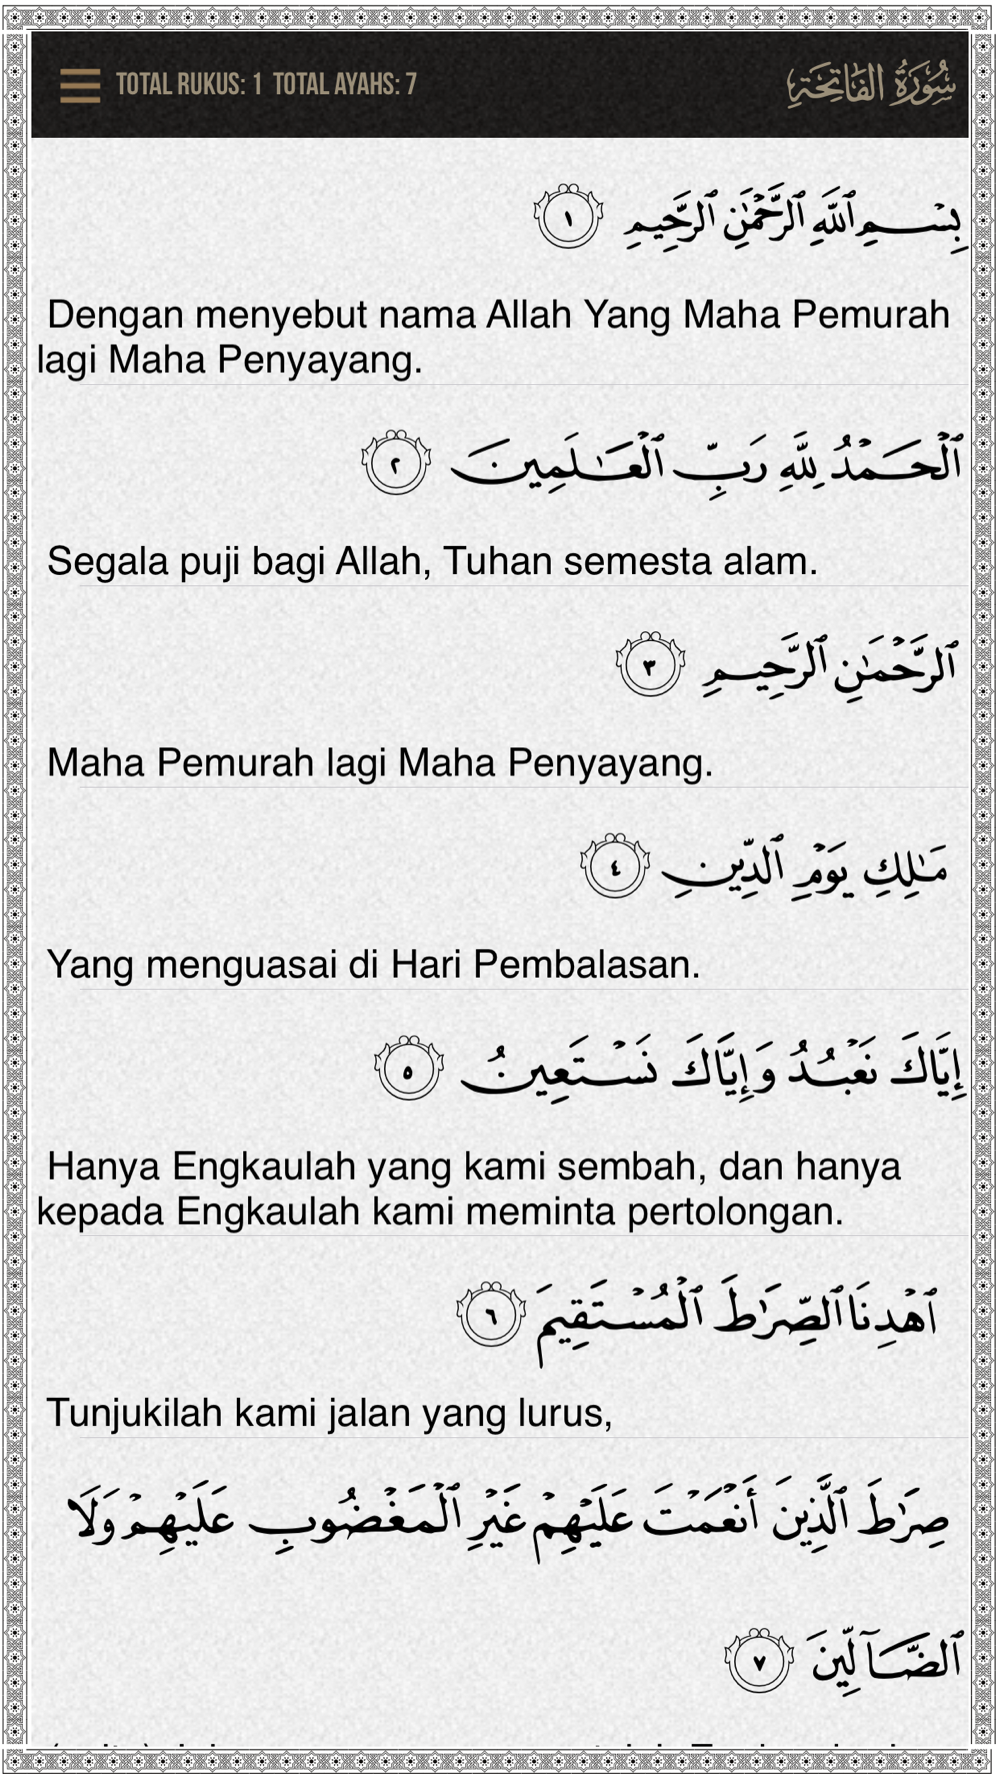 TOTAL RUKUS: 1 TOTAL AYAHS: 7
سُورَةُ الفَاتِحَةِ
بِسْمِ ٱللَّهِ ٱلرَّحْمَٰنِ ٱلرَّحِيمِ ١
Dengan menyebut nama Allah Yang Maha Pemurah
lagi Maha Penyayang.
ٱلْحَمْدُ لِلَّهِ رَبِّ ٱلْعَـٰلَمِينَ ٢
Segala puji bagi Allah, Tuhan semesta alam.
ٱلرَّحْمَـٰنِ ٱلرَّحِيمِ ٣
Maha Pemurah lagi Maha Penyayang.
مَـٰلِكِ يَوْمِ ٱلدِّينِ ٤
Yang menguasai di Hari Pembalasan.
إِيَّاكَ نَعْبُدُ وَإِيَّاكَ نَسْتَعِينُ ٥
Hanya Engkaulah yang kami sembah, dan hanya
kepada Engkaulah kami meminta pertolongan.
ٱهْدِنَا ٱلصِّرَٰطَ ٱلْمُسْتَقِيمَ ٦
Tunjukilah kami jalan yang lurus,
صِرَٰطَ ٱلَّذِينَ أَنْعَمْتَ عَلَيْهِمْ غَيْرِ ٱلْمَغْضُوبِ عَلَيْهِمْ وَلَا
ٱلضَّآلِّينَ ٧